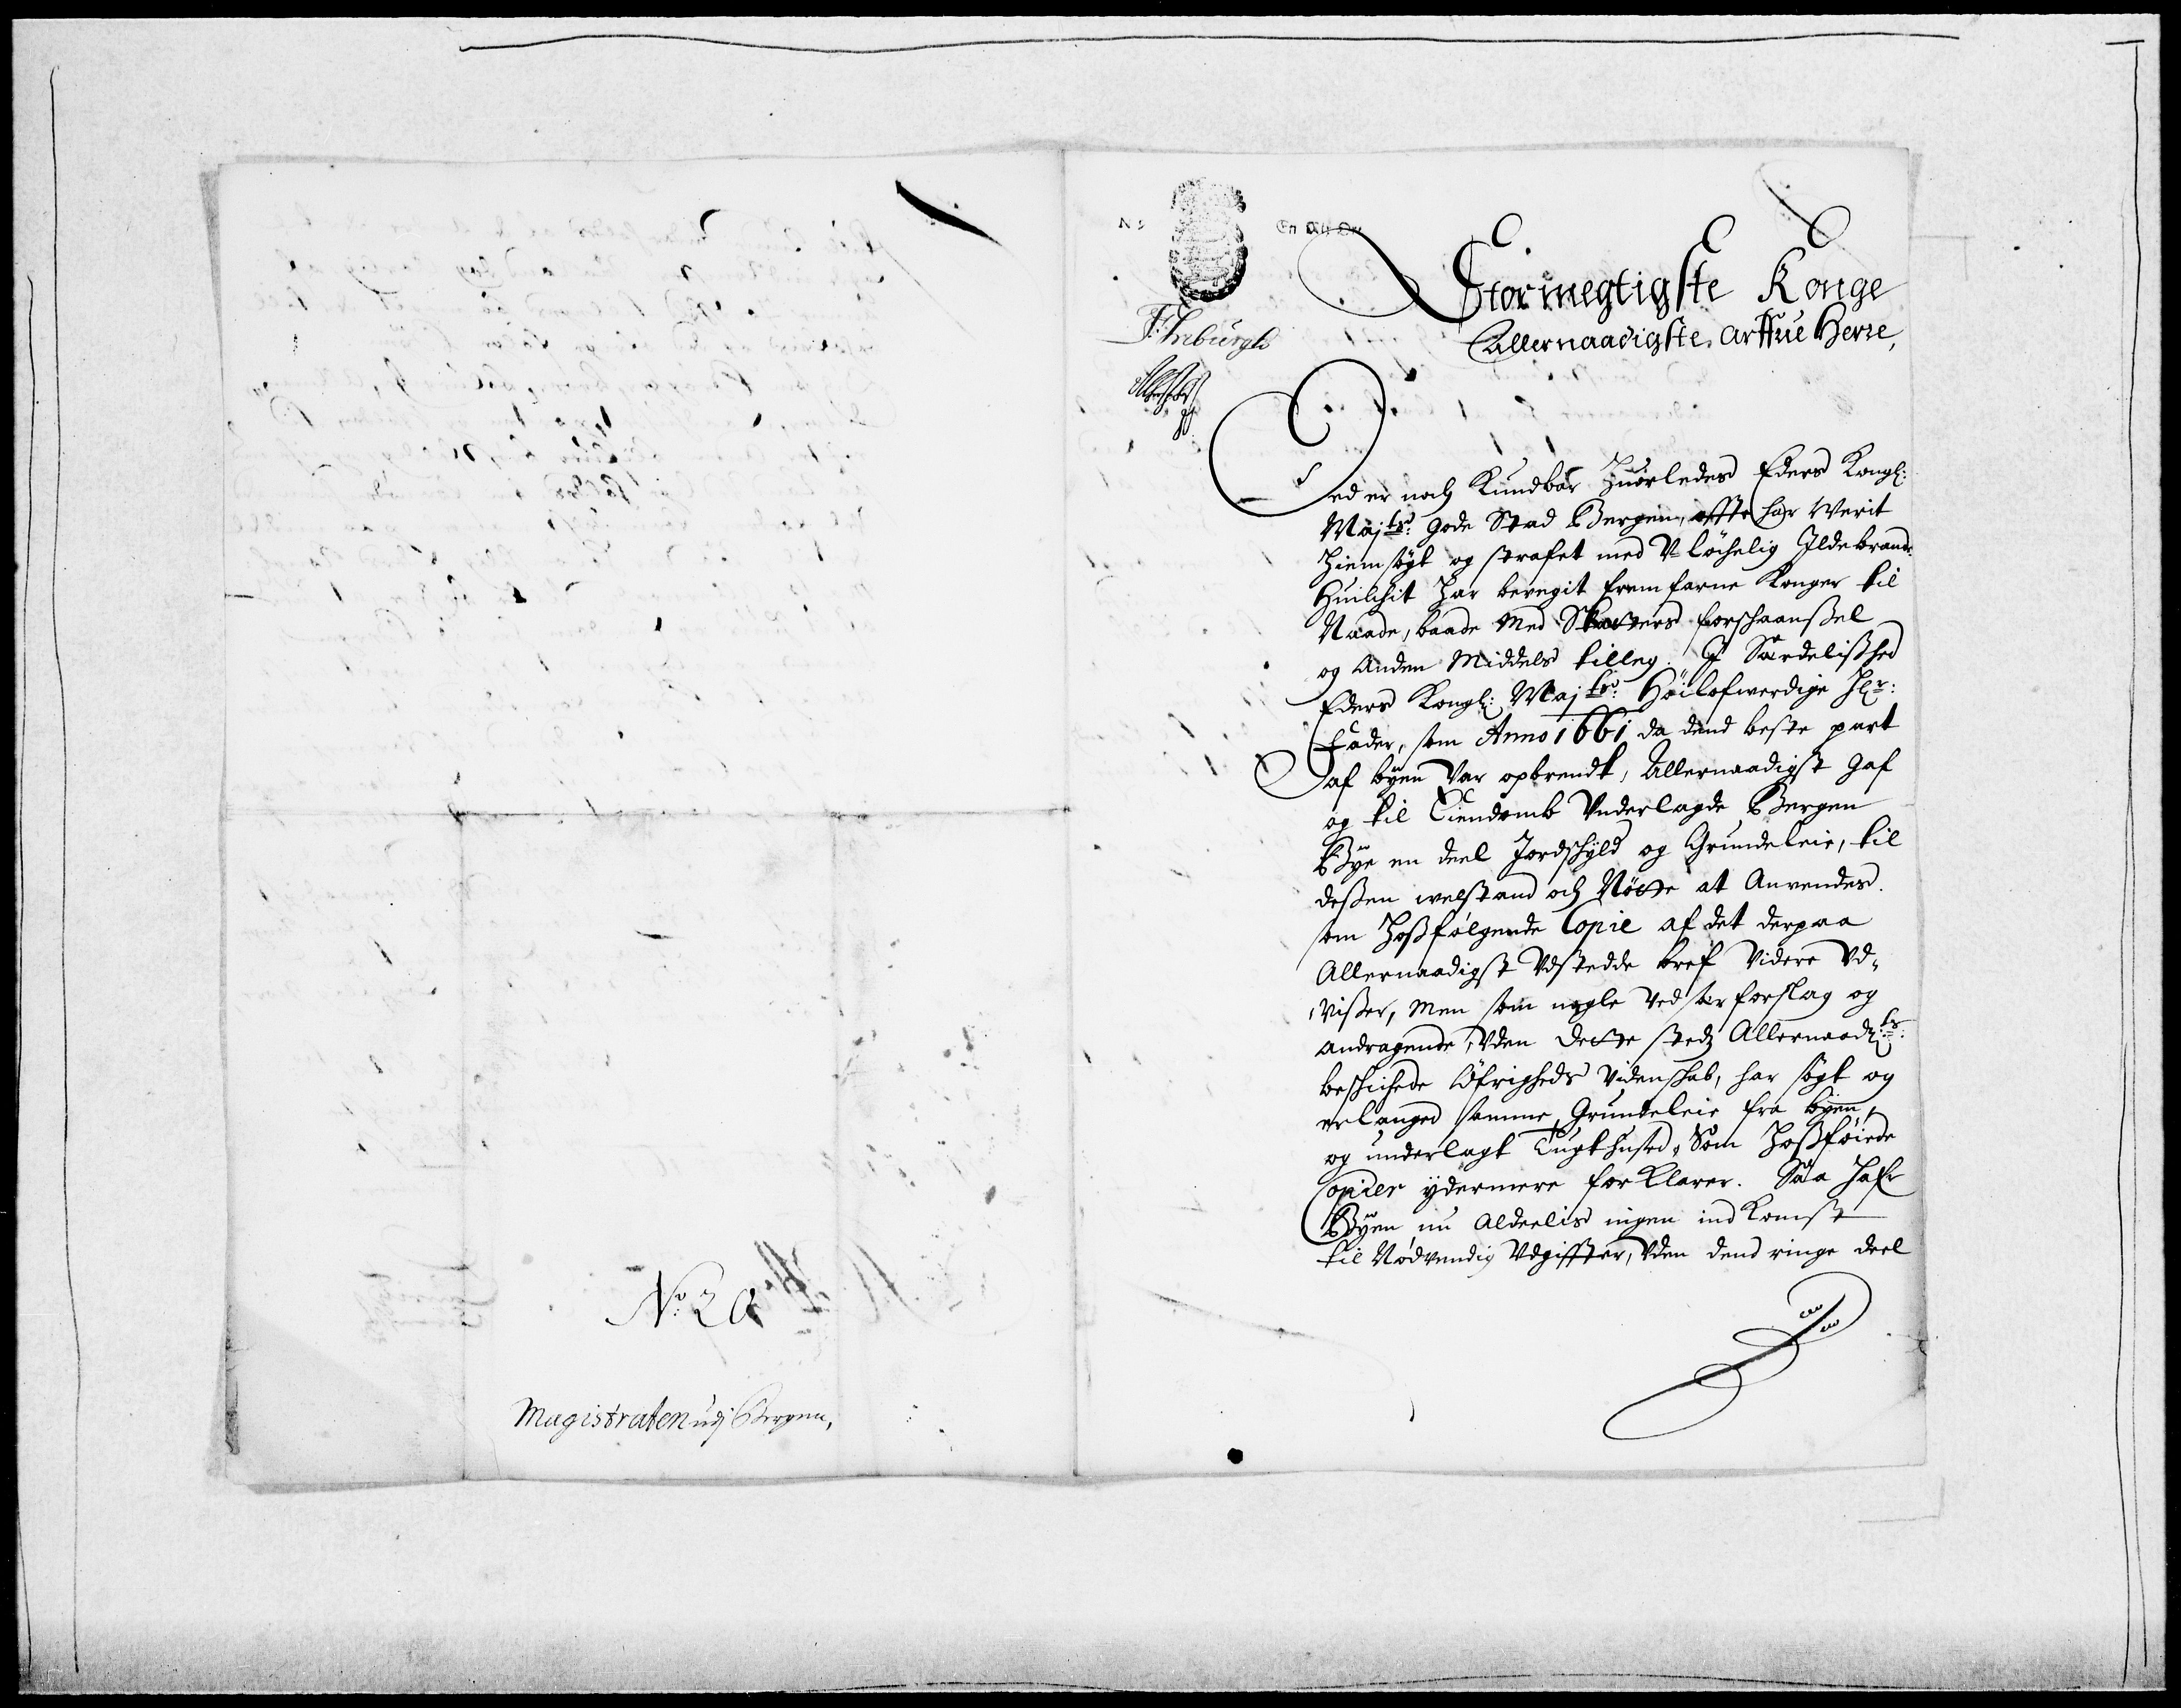 No: 20
Magistraten udj Bergen,
En Alt Ør
Stormegtigste Konge
Allernaadigste Arffue Herre,
Ded er noch Kundbar Huorledes Eders Kongl:
Majts: gode Stad Bergen, offte har Werit
Hiemsögt og straffet med V-löchelig Ildebrand
Huilchit Har bevegit fremfarne Konger til
Naade, baade Med Skatters forschaanßel
og Anden Middels tilleg. I Særdelißhed
Eders Kongl: Majts: Höilofwerdige Hr:
Fader, som Anno 1661 da dend beste part
af byen Var opbrendt, Allernaadigst gaf
og til Eiendomb Vnderlagde Bergen
Bye en deel Jordschyld og Grundeleie, til
deßen welstand och Nötte at Anvendes.
som Hoßfölgende Copie af det derpaa
Allernaadigst Vdstedde bref Videre Vd-
vißer, Men som nogle Ved forslag og
andragende, Vden dette steds Allernaadts:
beschichede Öfrigheds Videnschab, har sögt og
erlanged samme Grundeleie fra byen,
og underlagt Tugthused, Som Hoßföiede
Copier ydermere forklarer. Saa Hafr
Byen nu Aldeelis ingen ind Komst
til Nödvendig Vdgiffter, Vden dend ringe deel